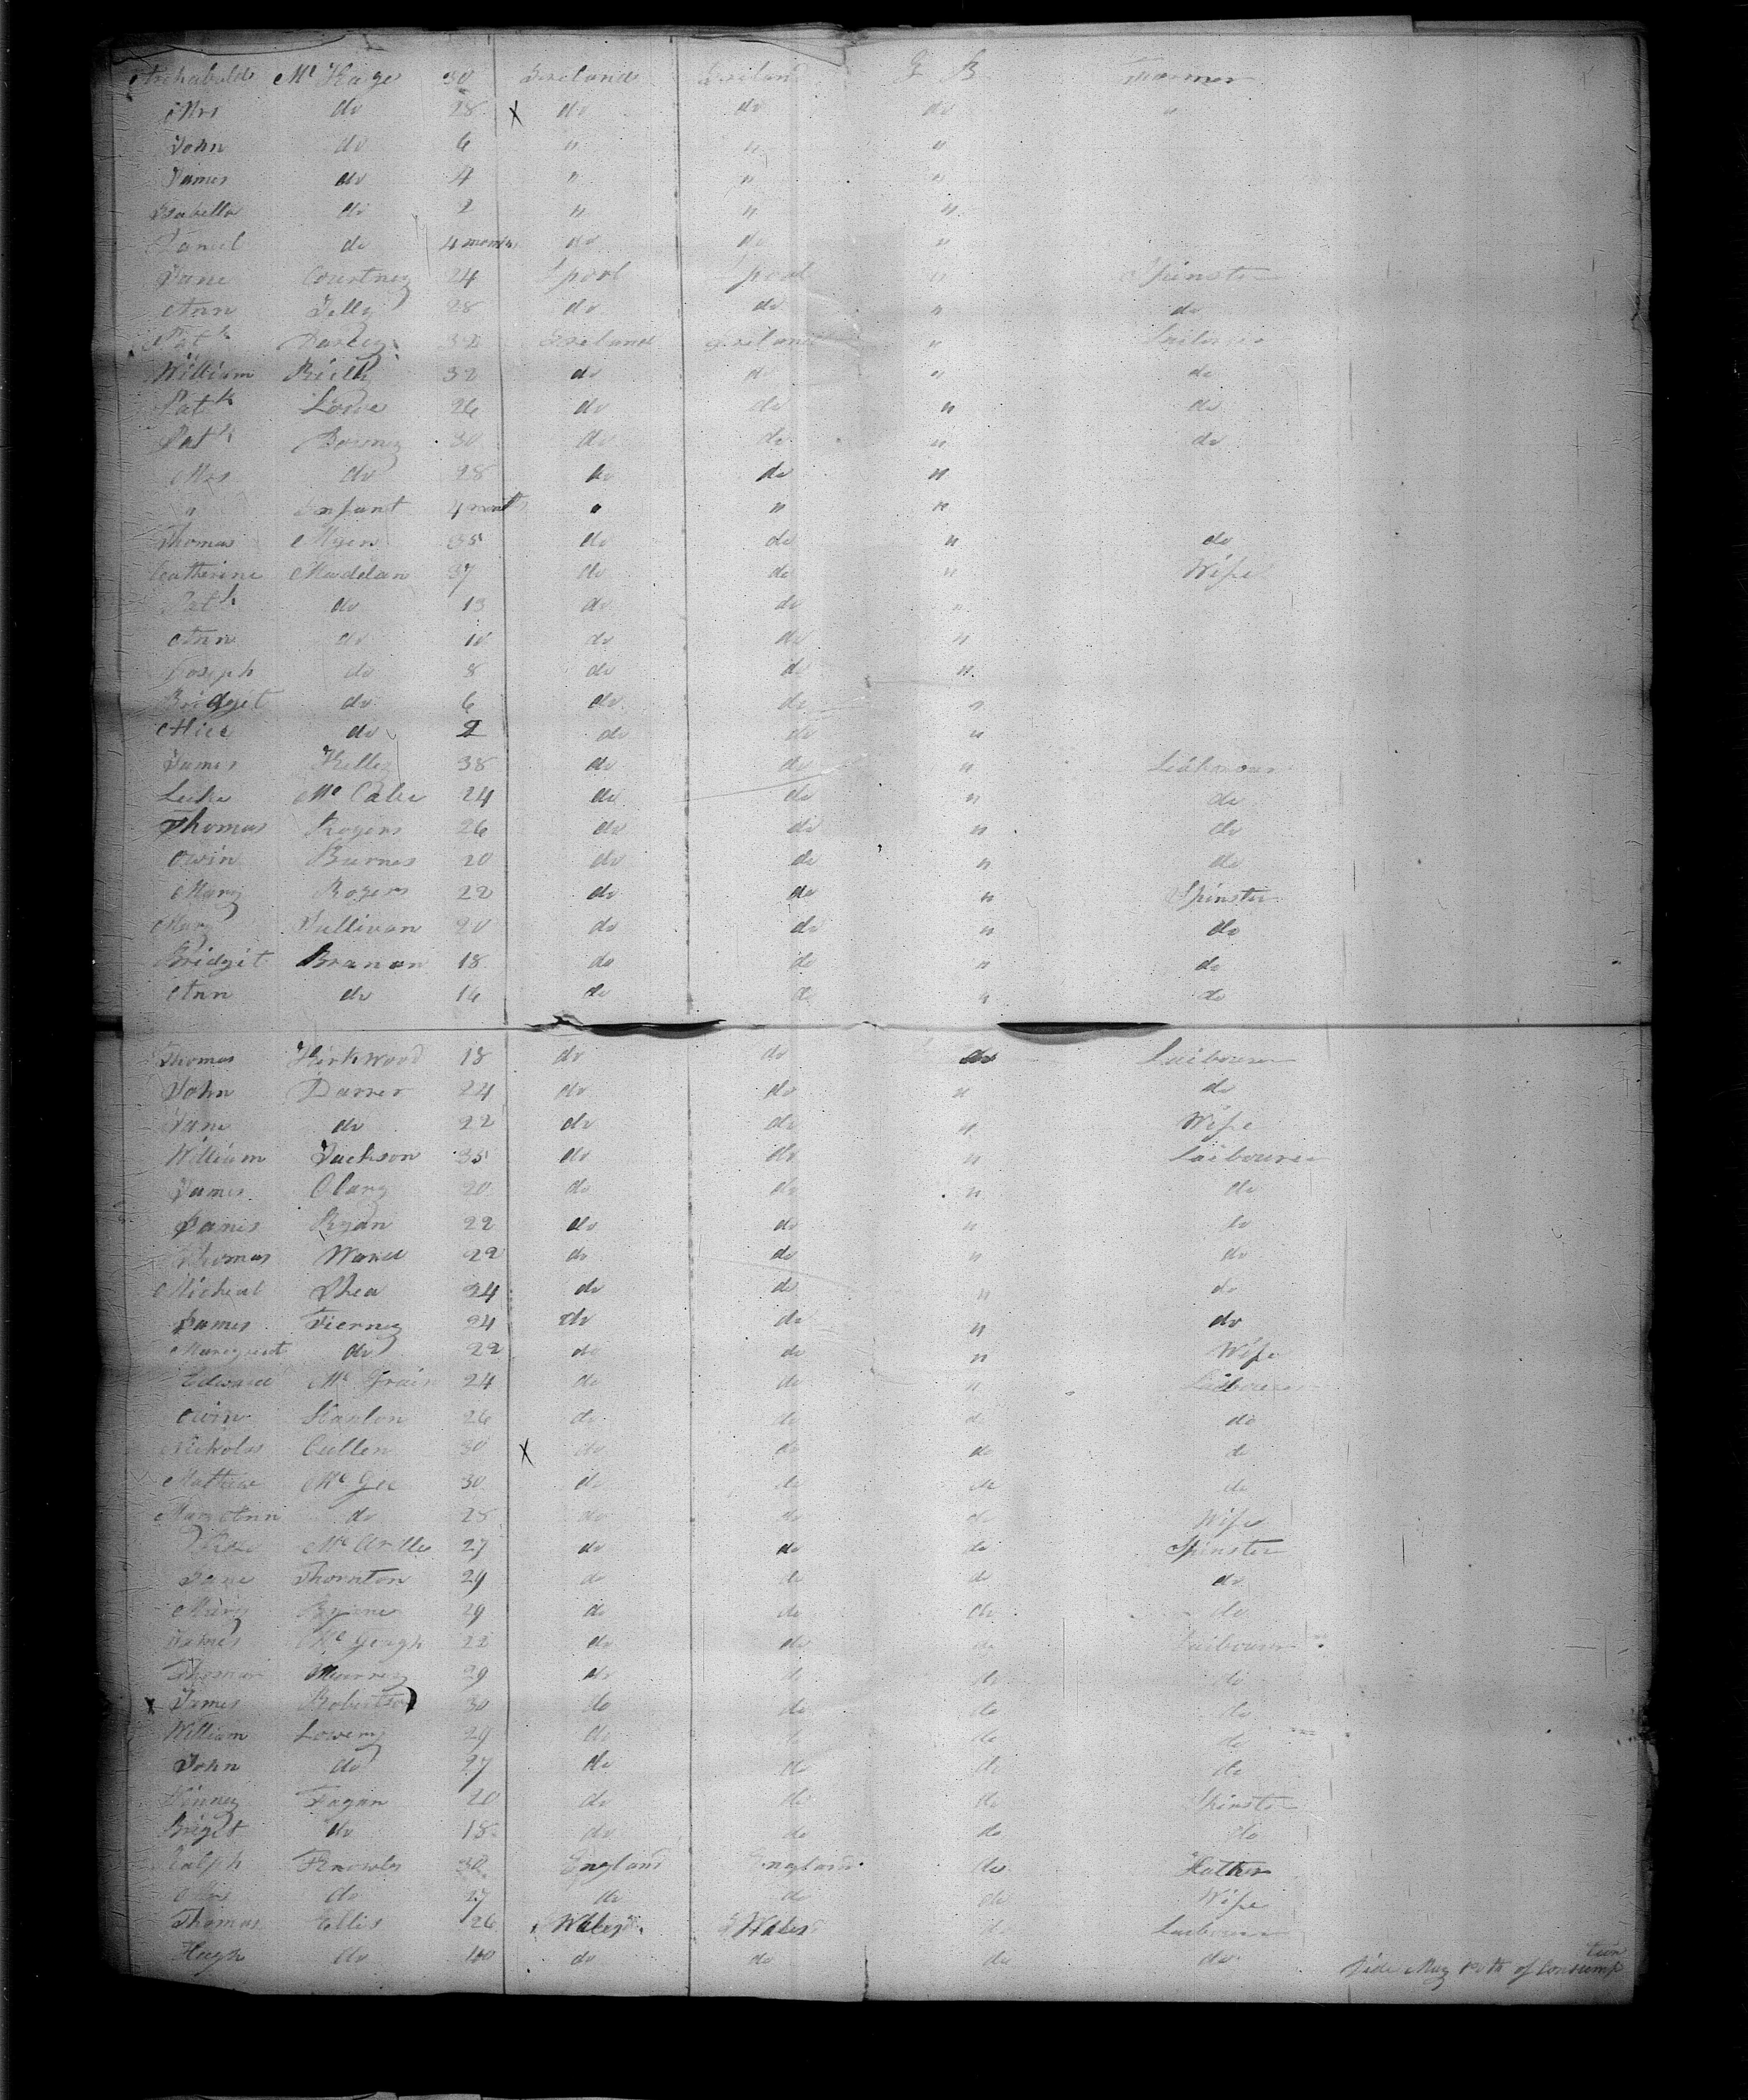 Archabald Mc Kage 30 Ireland Ireland G B Farmer
Mrs do 28 X do do do "
John do 6 " " "
James do 4 " " "
Isabella do 2 " " "
Daniel do 4 months do do "
Jane Courtney 24 Lpool Lpool " Spinster
Ann Jelly 28 do do " do
Patk 32 Ireland Ireland "
William Reilly 32 do do " do
Patk 26 do do " do
Patk 30 do do " do
Mrs do 28 do do "
" Infant 4 months " " "
Thomas 35 do do " do
Catherine Madelan 37 do do " Wife
Patk do 13 do do "
Ann do 10 do do "
Joseph do 8 do do "
Bridget do 6 do do "
Alice do 2 do do "
James Kelley 38 do do "
Luke Mc Cabe 24 do do " do
Thomas Rogers 26 do do " do
Owin Burnes 20 do do " do
Mary Rogers 22 do do " Spinster
Mary Sullivan 20 do do " do
Bridgit Branan 18 do do " do
Ann do 16 do do " do
Thomas Kirkwood 18 do do do Laibourer
John 24 do do " do
Jane do 22 do do " Wife
William Jackson 35 do do " Laibourer
James Clary 20 do do " do
Ryan 22 do do " do
Thomas Ward 22 do do " do
Micheal Shea 24 do do " do
James Tierney 24 do do " do
Margreat do 22 do do " Wife
Edward Mc 24 do do " Laibourer
Owin Hanlon 26 do do do do
Nicholas Cullen 30 X do do do do
Mathew Mc Gee 30 do do do do
Mary Ann do 28 do do do Wife
Rose Mc Ardle 27 do do do Spinster
Jane Thornton 29 do do do do
Mary Byrne 29 do do do do
James Mc Geogh 22 do do do Laibourer
Thomas Murrey 29 do do do do
X James Robertson 30 do do do do
William Lowery 29 do do do do
John do 27 do do do do
Fagan 20 do do do Spinster
Briget do 18 do do do do
Ralph Knowles 30 England England do Hatter
Mrs do 27 do do do Wife
Thomas Ellis 26 Wales Wales do Laibourer
Hugh do 40 do do do do
Dide May 10th of Consumption